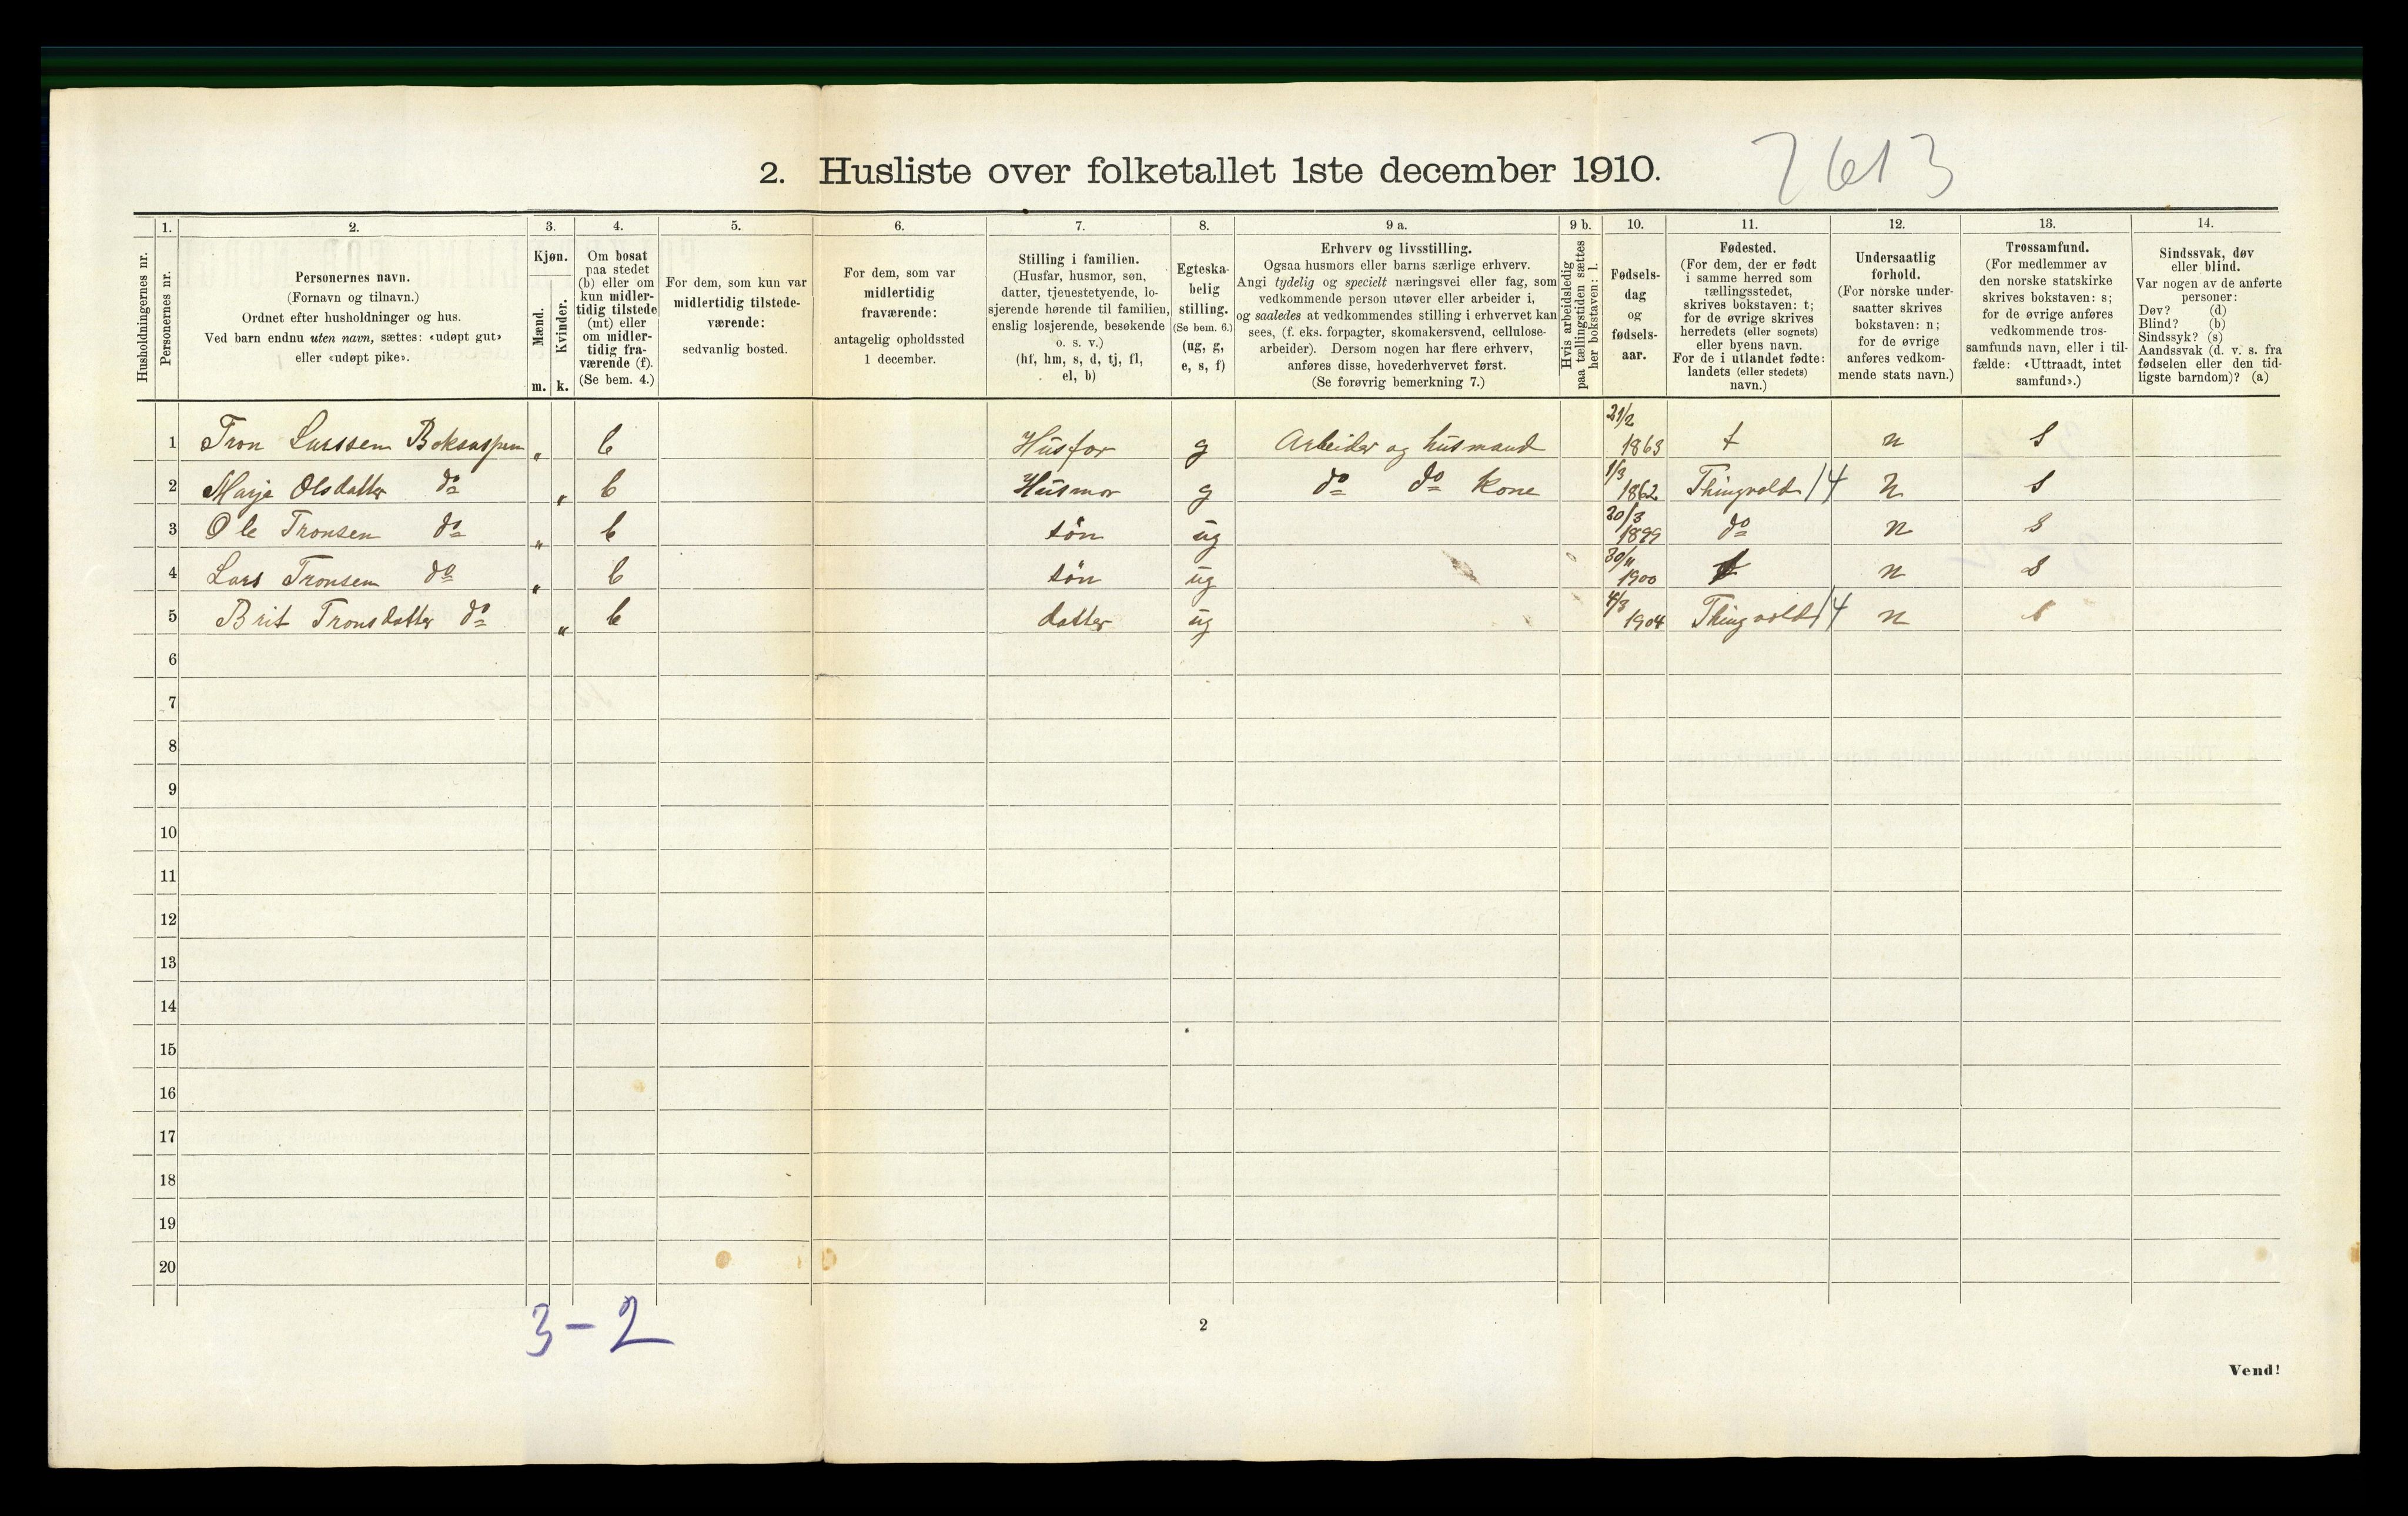 2. Husliste over folketallet 1ste december 1910.
7613
Husholdningernes nr.
1.
Personernes nr.
2.
Personernes navn.
(Fornavn og tilnavn.)
Ordnet efter husholdninger og hus.
Ved barn endnu uten navn, sættes: «udøpt gut»
eller «udøpt pike».
3.
Kjøn.
Mænd.
m.
Kvinder.
k.
4.
Om bosat
paa stedet
(b) eller om
kun midler-
tidig tilstede
(mt) eller
om midler-
tidig fra-
værende (f).
(Se bem. 4.)
5.
For dem, som kun var
midlertidig tilstede-
værende:
sedvanlig bosted.
6.
For dem, som var
midlertidig
fraværende:
antagelig opholdssted
1 december.
7.
Stilling i familien.
(Husfar, husmor, søn,
datter, tjenestetyende, lo-
sjerende hørende til familien,
enslig losjerende, besøkende
o. s. v.)
(hf, hm, s, d, tj, fl,
el, b)
8.
Egteska-
belig
stilling.
(Se bem. 6.)
(ug, g,
e, s, f)
9 a.
Erhverv og livsstilling.
Ogsaa husmors eller barns særlige erhverv.
Angi tydelig og specielt næringsvei eller fag, som
vedkommende person utøver eller arbeider i,
og saaledes at vedkommendes stilling i erhvervet kan
sees, (f. eks. forpagter, skomakersvend, cellulose-
arbeider). Dersom nogen har flere erhverv,
anføres disse, hovederhvervet først.
(Se forøvrig bemerkning 7.)
9 b.
Hvis arbeidsledig
paa tællingstiden sættes
her bokstaven: l.
10.
Fødsels-
dag
og
fødsels-
aar.
11.
Fødested.
(For dem, der er født
i samme herred som
tællingsstedet,
skrives bokstaven: t;
for de øvrige skrives
herredets (eller sognets)
eller byens navn.
For de i utlandet fødte:
landets (eller stedets)
navn.)
12.
Undersaatlig
forhold.
(For norske under-
saatter skrives
bokstaven: n;
for de øvrige
anføres vedkom-
mende stats navn.)
13.
Trossamfund.
(For medlemmer av
den norske statskirke
skrives bokstaven: s;
for de øvrige anføres
vedkommende tros-
samfunds navn, eller i til-
fælde: «Uttraadt, intet
samfund».)
14.
Sindssvak, døv
eller blind.
Var nogen av de anførte
personer:
Døv? (d)
Blind? (b)
Sindssyk? (s)
Aandssvak (d. v. s. fra
fødselen eller den tid-
ligste barndom)? (a)
1 Tron Larssen Boksaspen „ b Husfar g Arbeider og husmand 21/2 1863 t n s
2 Marje Olsdatter do „ b Husmor g do do kone 1/3 1862 Thingvold /4 n s
3 Ole Tronsen do „ b sön ug 30/3 1899 do n s
4 Lars Tronsen do „ b sön ug 30/11 1900 t n s
5 Brit Tronsdatter do „ b datter ug 4/3 1904 Thingvold /4 n s
6
7
8
9
10
11
12
13
14
15
16
17
18
19
20
3-2
2
Vend!